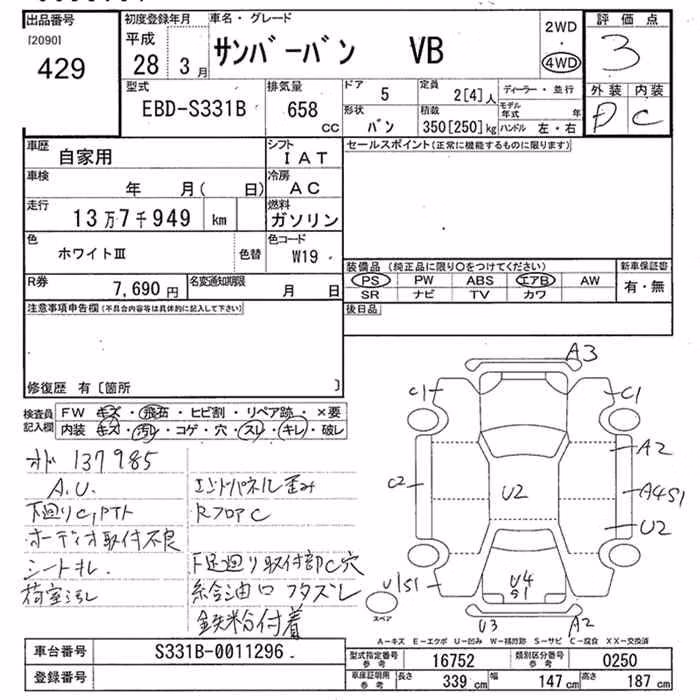 出品番号
[2090]
429
初度登録年月
平成
28 3月
車名・グレード
サンバーバン VB
2WD
・
4WD
評価点
3
外装 内装
D C
型式
EBD-S331B
排気量
658
cc
ドア
5
定員
2[4]人
形状
バン
積載
350[250]kg
ディーラー・並行
モデル年式 年
ハンドル 左・右
車歴
自家用
シフト
IAT
車検
年 月( 日)
冷房
AC
走行
13万7千949 km
燃料
ガソリン
色
ホワイトⅢ
色替
色コード
W19
R券
7,690円
名変通知期限
月 日
セールスポイント(正常に機能するものに限ります)
装備品(純正品に限り○をつけてください)
PS PW ABS エアB AW
SR ナビ TV カワ
新車保証書
有・無
後日品
注意事項申告欄(不具合内容等は具体的に記入して下さい)
修復歴 有〔箇所 〕
検査員記入欄
FW キズ・飛石・ヒビ割・リペア跡・×要
内装 キズ・汚レ・コゲ・穴・スレ・キレ・破レ
オド 137985
A.U.
下廻りC,PTト
オーディオ取付不良
シートキレ.
荷室汚レ
エンドパネル歪み
RフロアC
下足廻り取付部C穴
給油口フタズレ
鉄粉付着
A3
C1
C1
A2
C2
U2
A4S1
U2
U1S1
U4
S1
スペア
U3
A2
A-キズ E-エクボ U-凹み W-補修跡 S-サビ C-腐食 XX-交換済
車台番号
S331B-0011296.
登録番号
型式指定番号
参考
16752
類別区分番号
参考
0250
車庫証明用
参考
長さ 339 cm 幅 147 cm 高さ 187 cm